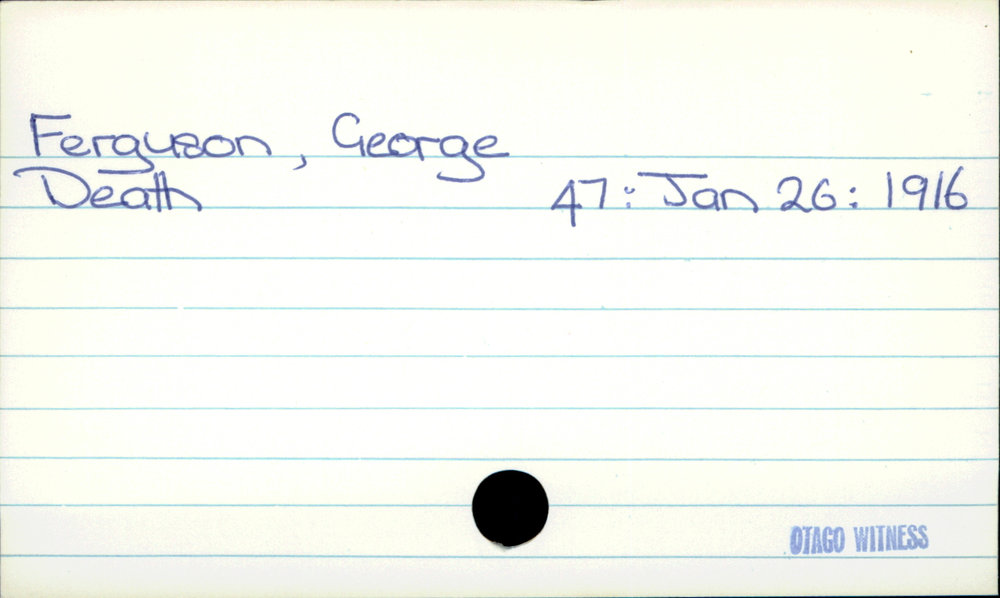 Ferguson, George
Death 47: Jan 26: 1916
OTAGO WITNESS